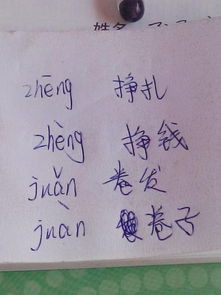 姓名
zhēng 挣扎
zhèng 挣钱
juǎn 卷发
juàn 卷子